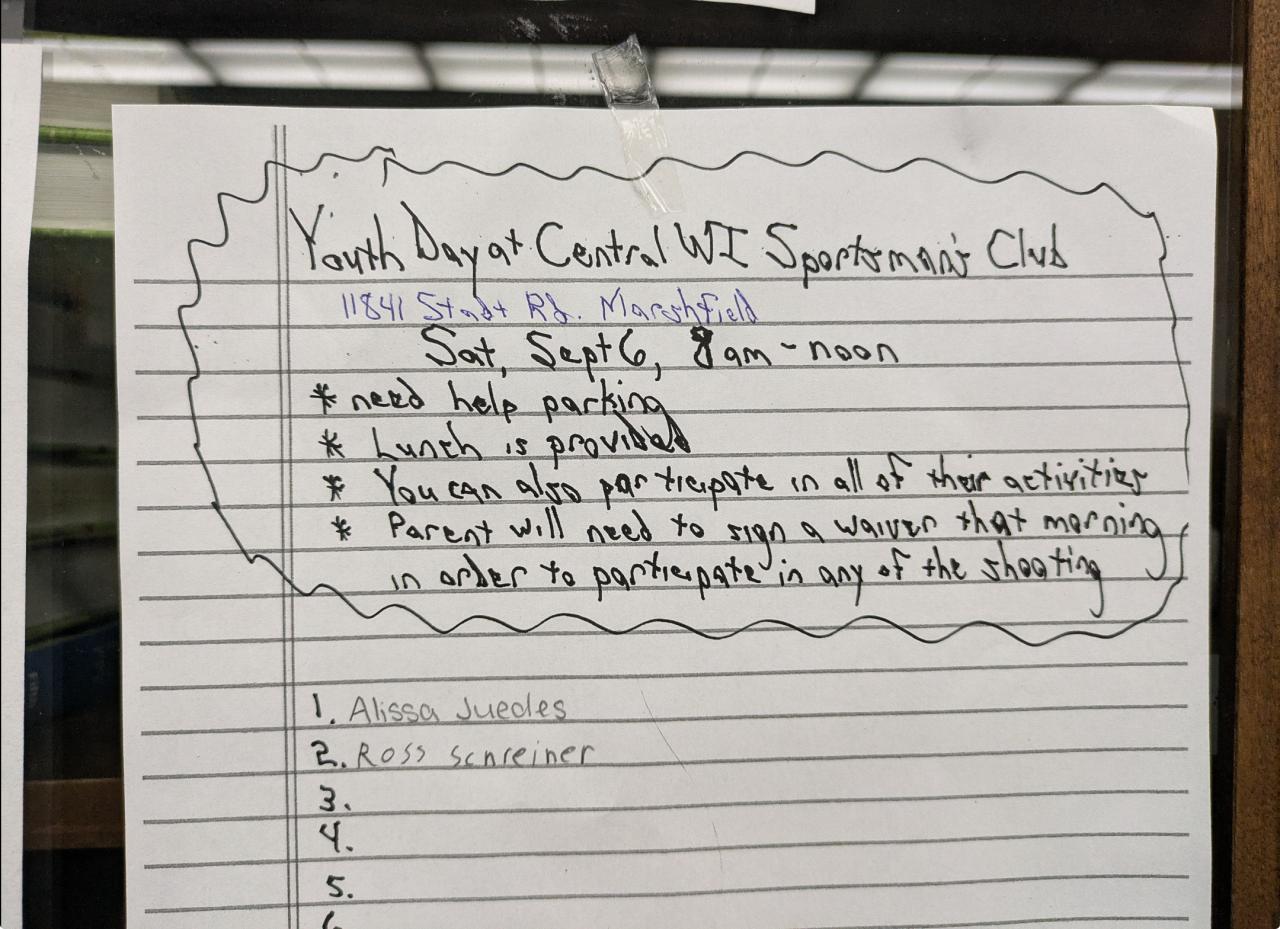 Youth Day at Central WI Sportsman's Club
11841 Stadt Rd. Marshfield
Sat, Sept 6, 8am - noon
* need help parking
* Lunch is provided
* You can also participate in all of their activities
* Parent will need to sign a waiver that morning
in order to participate in any of the shooting
1. Alissa Juedes
2. Ross Schreiner
3.
4.
5.